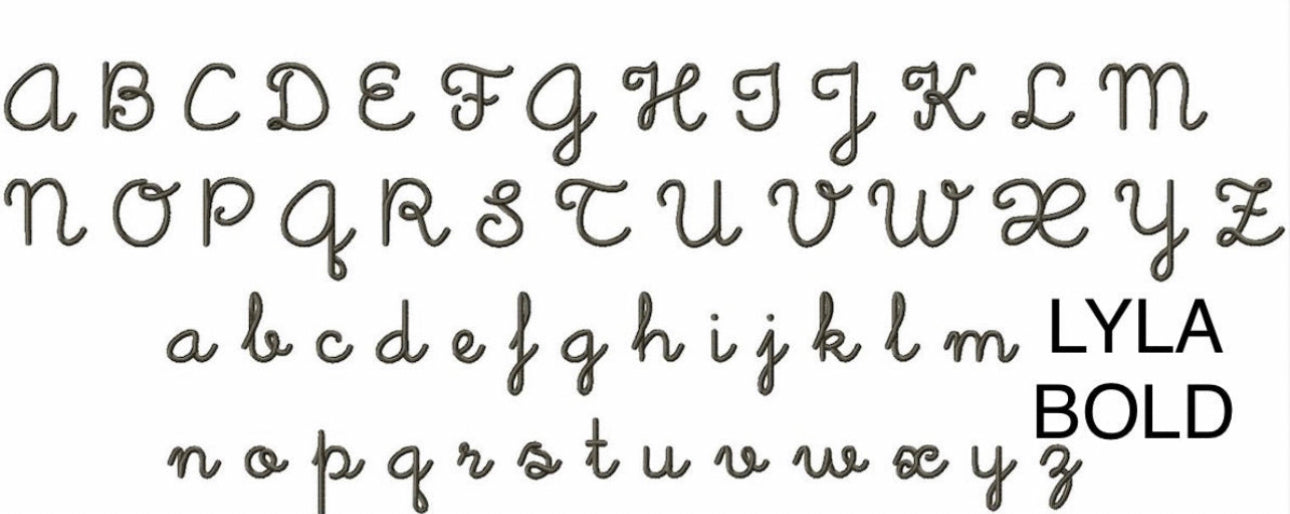 A B C D E F G H I J K L M
N O P Q R S T U V W X Y Z
a b c d e f g h i j k l m
LYLA
BOLD
n o p q r s t u v w x y z